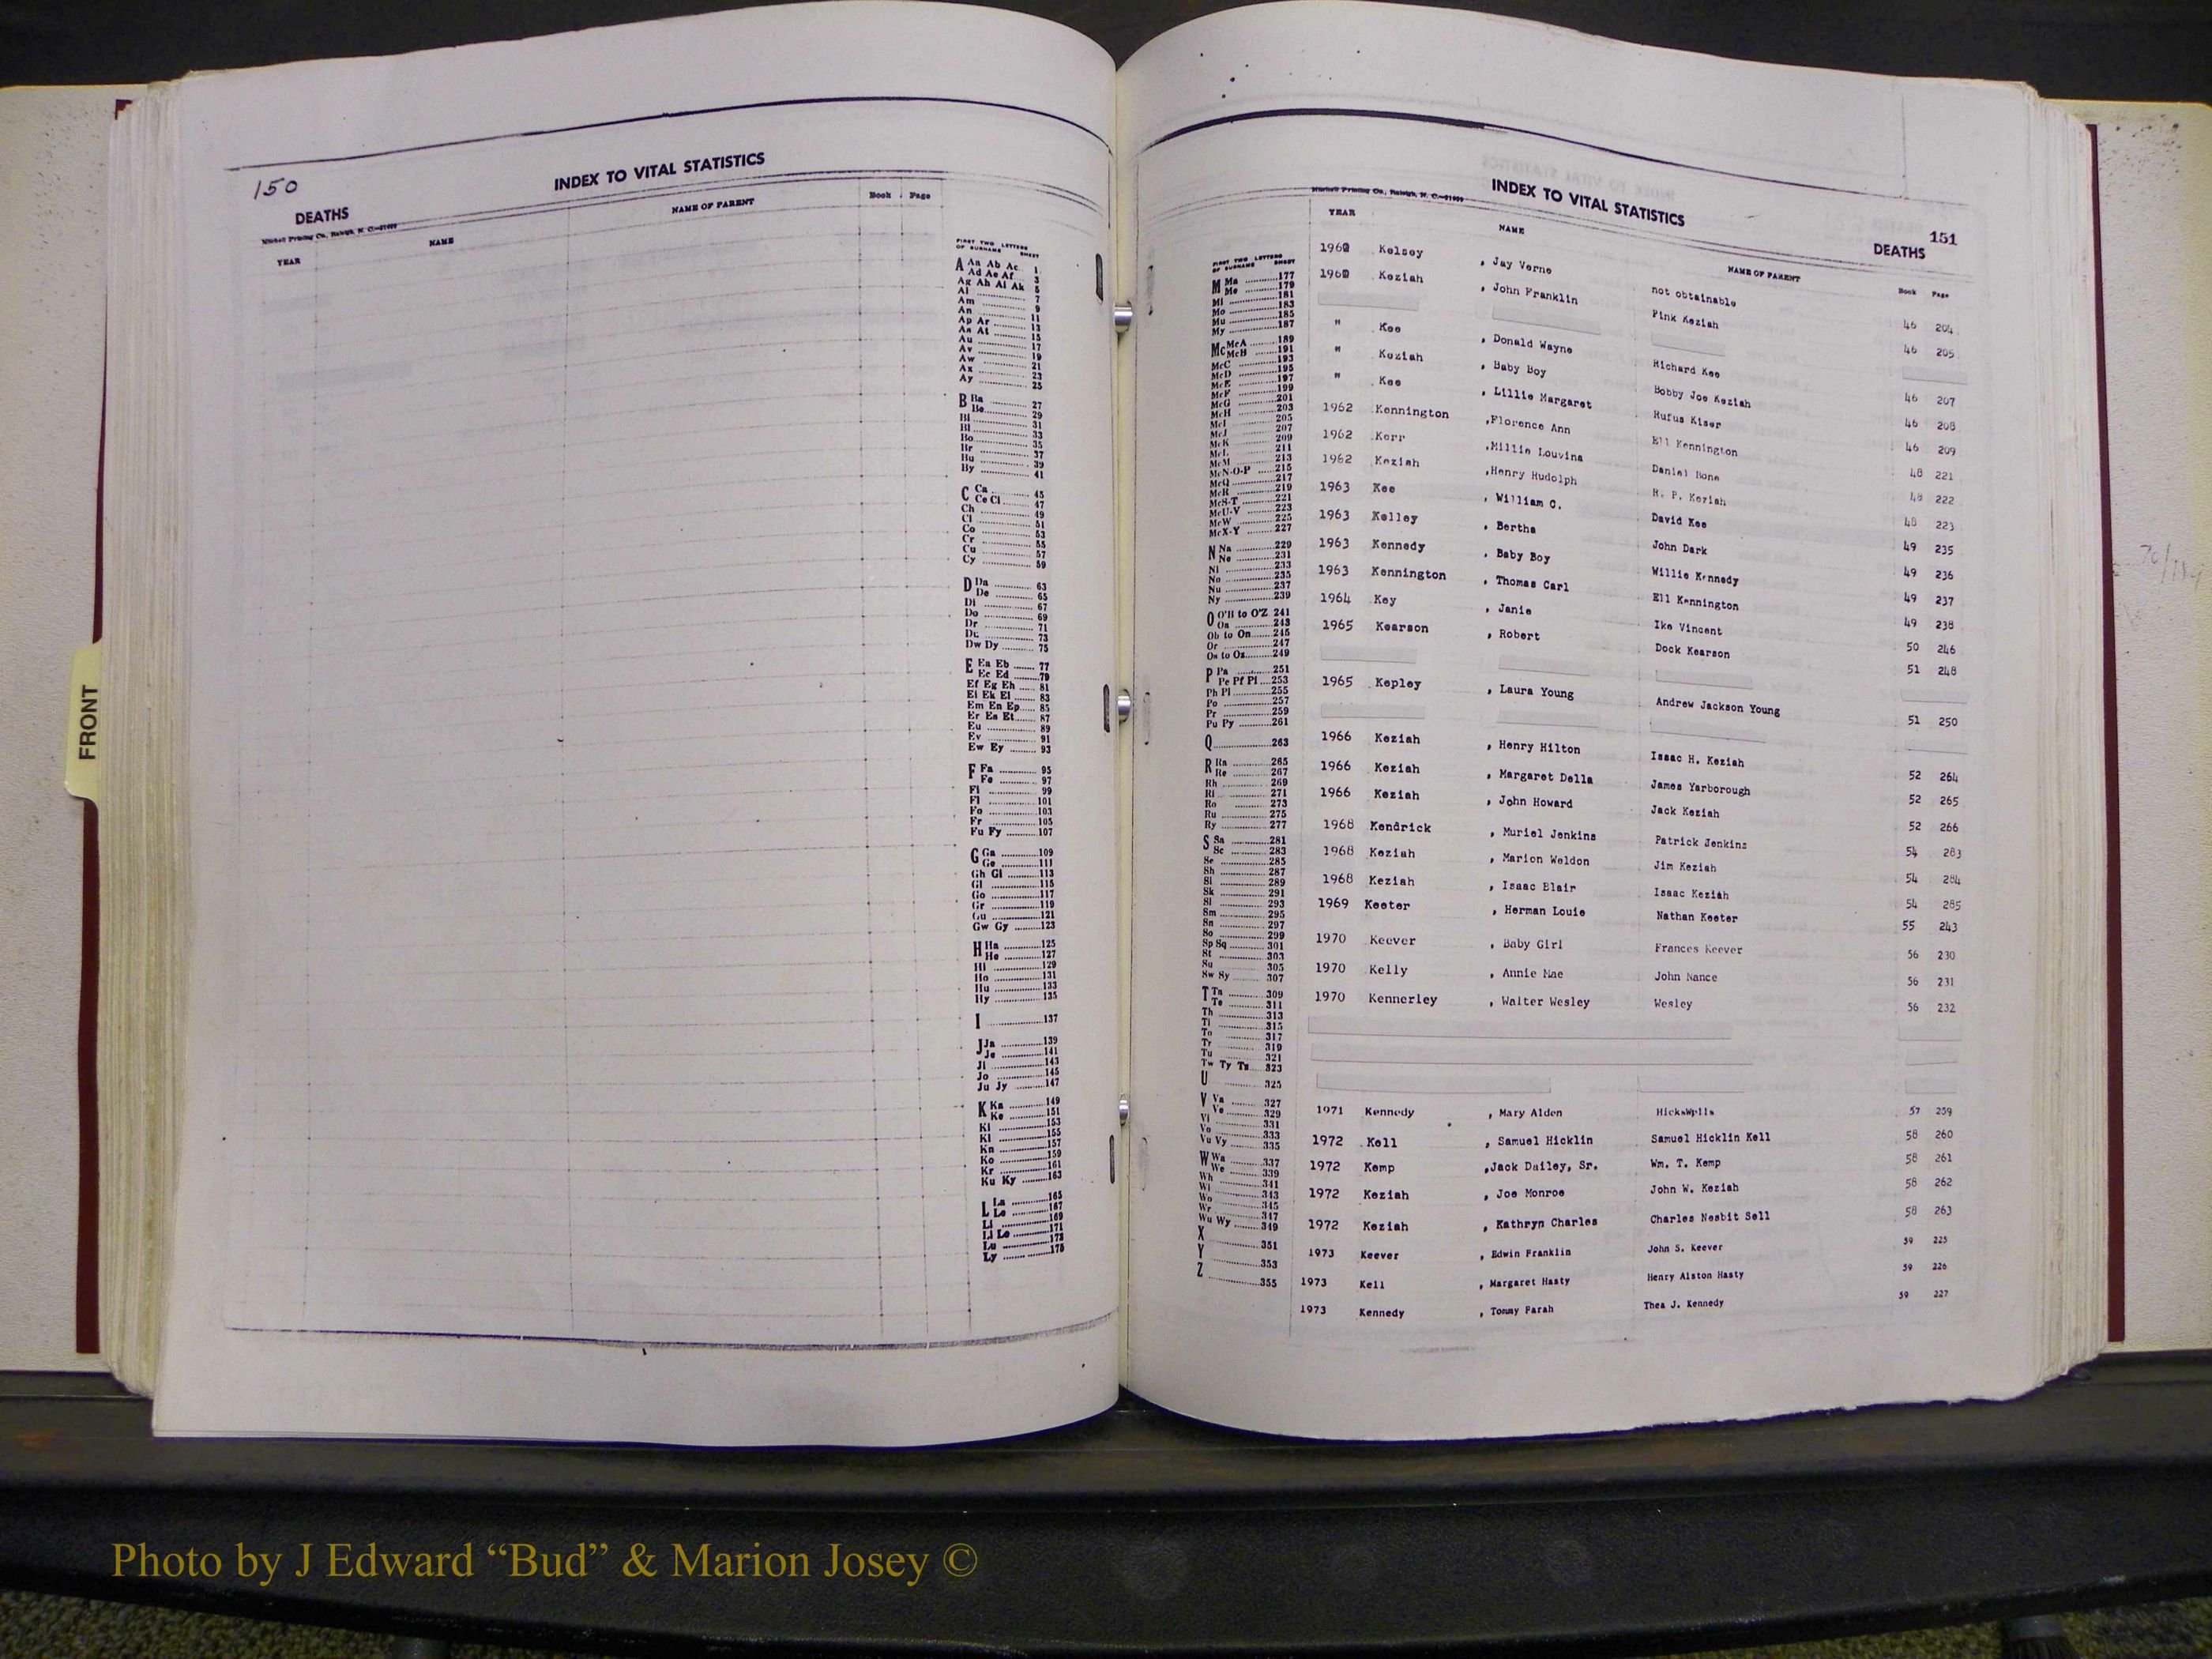 150
INDEX TO VITAL STATISTICS
DEATHS
Mitchell Printing Co., Raleigh, N. C.
YEAR NAME NAME OF PARENT Book Page
FIRST TWO LETTERS
OF SURNAME SHEET
A Aa Ab Ac 1
Ad Ae Af 3
Ag Ah Ai Ak 5
Al 7
Am 9
An 11
Ap Ar 13
As At 15
Au 17
Av 19
Aw 21
Ax 23
Ay 25
B Ba 27
Be 29
Bi 31
Bl 33
Bo 35
Br 37
Bu 39
By 41
C Ca 45
Ce Ci 47
Ch 49
Cl 51
Co 53
Cr 55
Cu 57
Cy 59
D Da 63
De 65
Di 67
Do 69
Dr 71
Du 73
Dw Dy 75
E Ea Eb 77
Ec Ed 79
Ef Eg Eh 81
Ei Ek El 83
Em En Ep 85
Er Es Et 87
Eu 89
Ev 91
Ew Ey 93
F Fa 95
Fe 97
Fi 99
Fl 101
Fo 103
Fr 105
Fu Fy 107
G Ga 109
Ge 111
Gh Gi 113
Gl 115
Go 117
Gr 119
Gu 121
Gw Gy 123
H Ha 125
He 127
Hi 129
Ho 131
Hu 133
Hy 135
I 137
J Ja 139
Je 141
Ji 143
Jo 145
Ju Jy 147
K Ka 149
Ke 151
Ki 153
Kl 155
Kn 157
Ko 159
Kr 161
Ku Ky 163
L La 165
Le 167
Li 169
Ll Lo 171
Lu 173
Ly 175
FRONT
INDEX TO VITAL STATISTICS
151
DEATHS
Mitchell Printing Co., Raleigh, N. C.
YEAR NAME NAME OF PARENT Book Page
FIRST TWO LETTERS
OF SURNAME SHEET
M Ma 177
Me 179
Mi 181
Mo 183
Mu 185
My 187
Mc McA 189
McB 191
McC 193
McD 195
McE 197
McF 199
McG 201
McH 203
McI 205
McJ 207
McK 209
McL 211
McM 213
McN-O-P 215
McQ 217
McR 219
McS-T 221
McU-V 223
McW 225
McX-Y 227
N Na 229
Ne 231
Ni 233
No 235
Nu 237
Ny 239
O O'B to O'Z 241
Oa 243
Ob to On 245
Or 247
Os to Oz 249
P Pa 251
Pe Pf Pi 253
Ph Pl 255
Po 257
Pr 259
Pu Py 261
Q 263
R Ra 265
Re 267
Rh 269
Ri 271
Ro 273
Ru 275
Ry 277
S Sa 281
Sc 283
Se 285
Sh 287
Si 289
Sk 291
Sl 293
Sm 295
Sn 297
So 299
Sp Sq 301
St 303
Su 305
Sw Sy 307
T Ta 309
Te 311
Th 313
Ti 315
To 317
Tr 319
Tu 321
Tw Ty Tz 323
U 325
V Va 327
Ve 329
Vi 331
Vo 333
Vu Vy 335
W Wa 337
We 339
Wh 341
Wi 343
Wo 345
Wr 347
Wu Wy 349
X 351
Y 353
Z 355
1962 Kelsey , Jay Verne not obtainable 46 204
1962 Keziah , John Franklin Pink Keziah 46 205
" Kee , Donald Wayne Richard Kee 46 207
" Keziah , Baby Boy Bobby Joe Keziah 46 208
" Kee , Lillie Margaret Rufus Kiser 46 209
1962 Kennington ,Florence Ann Ell Kennington 48 221
1962 Kerr ,Millie Louvina Daniel Hone 48 222
1962 Keziah ,Henry Rudolph H. P. Keziah 48 223
1963 Kee , William C. David Kee 49 235
1963 Kelley , Bertha John Dark 49 236
1963 Kennedy , Baby Boy Willie Kennedy 49 237
1963 Kennington , Thomas Carl Ell Kennington 49 238
1964 Key , Janie Ike Vincent 50 246
1965 Kearson , Robert Dock Kearson 51 248
1965 Kepley , Laura Young Andrew Jackson Young 51 250
1966 Keziah , Henry Hilton Isaac H. Keziah 52 264
1966 Keziah , Margaret Della James Yarborough 52 265
1966 Keziah , John Howard Jack Keziah 52 266
1968 Kendrick , Muriel Jenkins Patrick Jenkins 54 283
1968 Keziah , Marion Weldon Jim Keziah 54 284
1968 Keziah , Isaac Blair Isaac Keziah 54 285
1969 Keeter , Herman Louie Nathan Keeter 55 243
1970 Keever , Baby Girl Frances Keever 56 230
1970 Kelly , Annie Mae John Nance 56 231
1970 Kennerley , Walter Wesley Wesley 56 232
1971 Kennedy , Mary Alden HicksWells 57 259
1972 Kell , Samuel Hicklin Samuel Hicklin Kell 58 260
1972 Kemp ,Jack Dailey, Sr. Wm. T. Kemp 58 261
1972 Keziah , Joe Monroe John W. Keziah 58 262
1972 Keziah , Kathryn Charles Charles Nesbit Sell 58 263
1973 Keever , Edwin Franklin John S. Keever 59 225
1973 Kell , Margaret Hasty Henry Alston Hasty 59 226
1973 Kennedy , Tommy Farah Thea J. Kennedy 59 227
Photo by J Edward “Bud” & Marion Josey ©